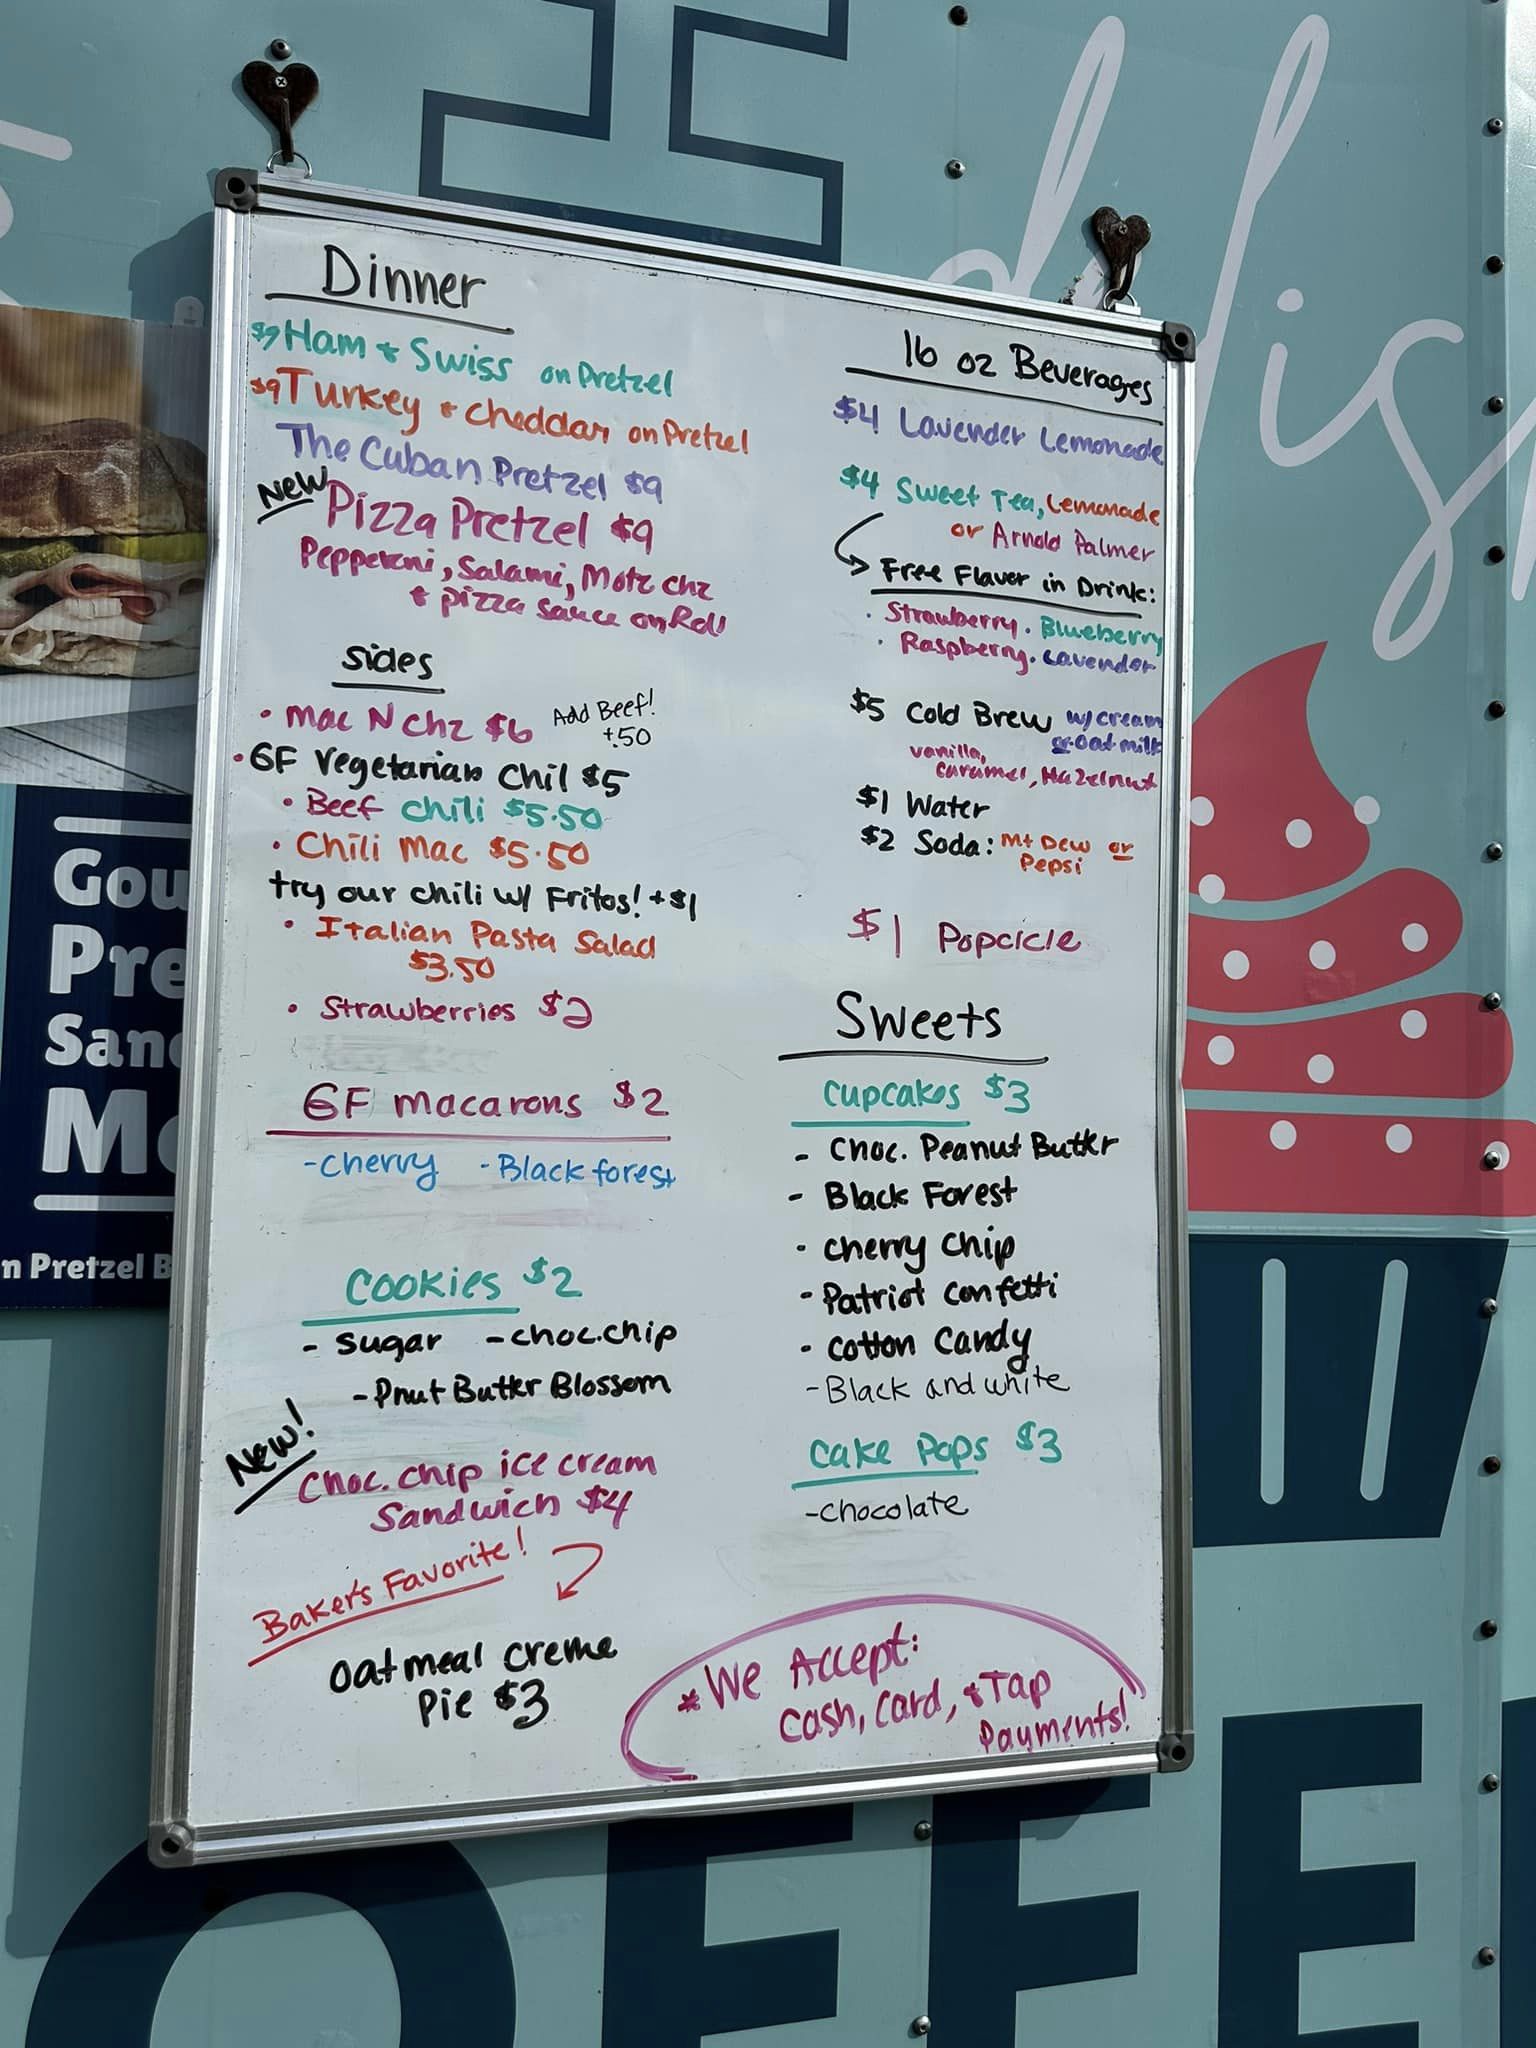 Dinner
$9 Ham & Swiss on Pretzel
$9 Turkey & cheddar on Pretzel
The Cuban Pretzel $9
New
Pizza Pretzel $9
Pepperoni, Salami, Motz chz
& pizza sauce on Roll
Sides
• Mac N Chz $6 Add Beef!
+.50
• GF Vegetarian Chil $5
• Beef chili $5.50
• Chili Mac $5.50
try our chili w/ Fritos! +$1
• Italian Pasta Salad
$3.50
• Strawberries $2
GF macarons $2
- cherry - Black forest
Cookies $2
- Sugar - choc.chip
- Pnut Butter Blossom
New!
Choc. chip ice cream
Sandwich $4
Baker's Favorite!
oatmeal creme
Pie $3
16 oz Beverages
$4 Lavender Lemonade
$4 Sweet Tea, Lemonade
or Arnold Palmer
Free Flavor in Drink:
· Strawberry · Blueberry
· Raspberry · Lavender
$5 Cold Brew w/ cream
or oat milk
vanilla,
caramel, Hazelnut
$1 Water
$2 Soda: Mt Dew or
Pepsi
$1 Popcicle
Sweets
Cupcakes $3
- Choc. Peanut Butter
- Black Forest
- Cherry Chip
- Patriot Confetti
- Cotton Candy
- Black and white
Cake Pops $3
- chocolate
* We Accept:
Cash, Card, & Tap
Payments!
Gou
Pre
San
n Pretzel B